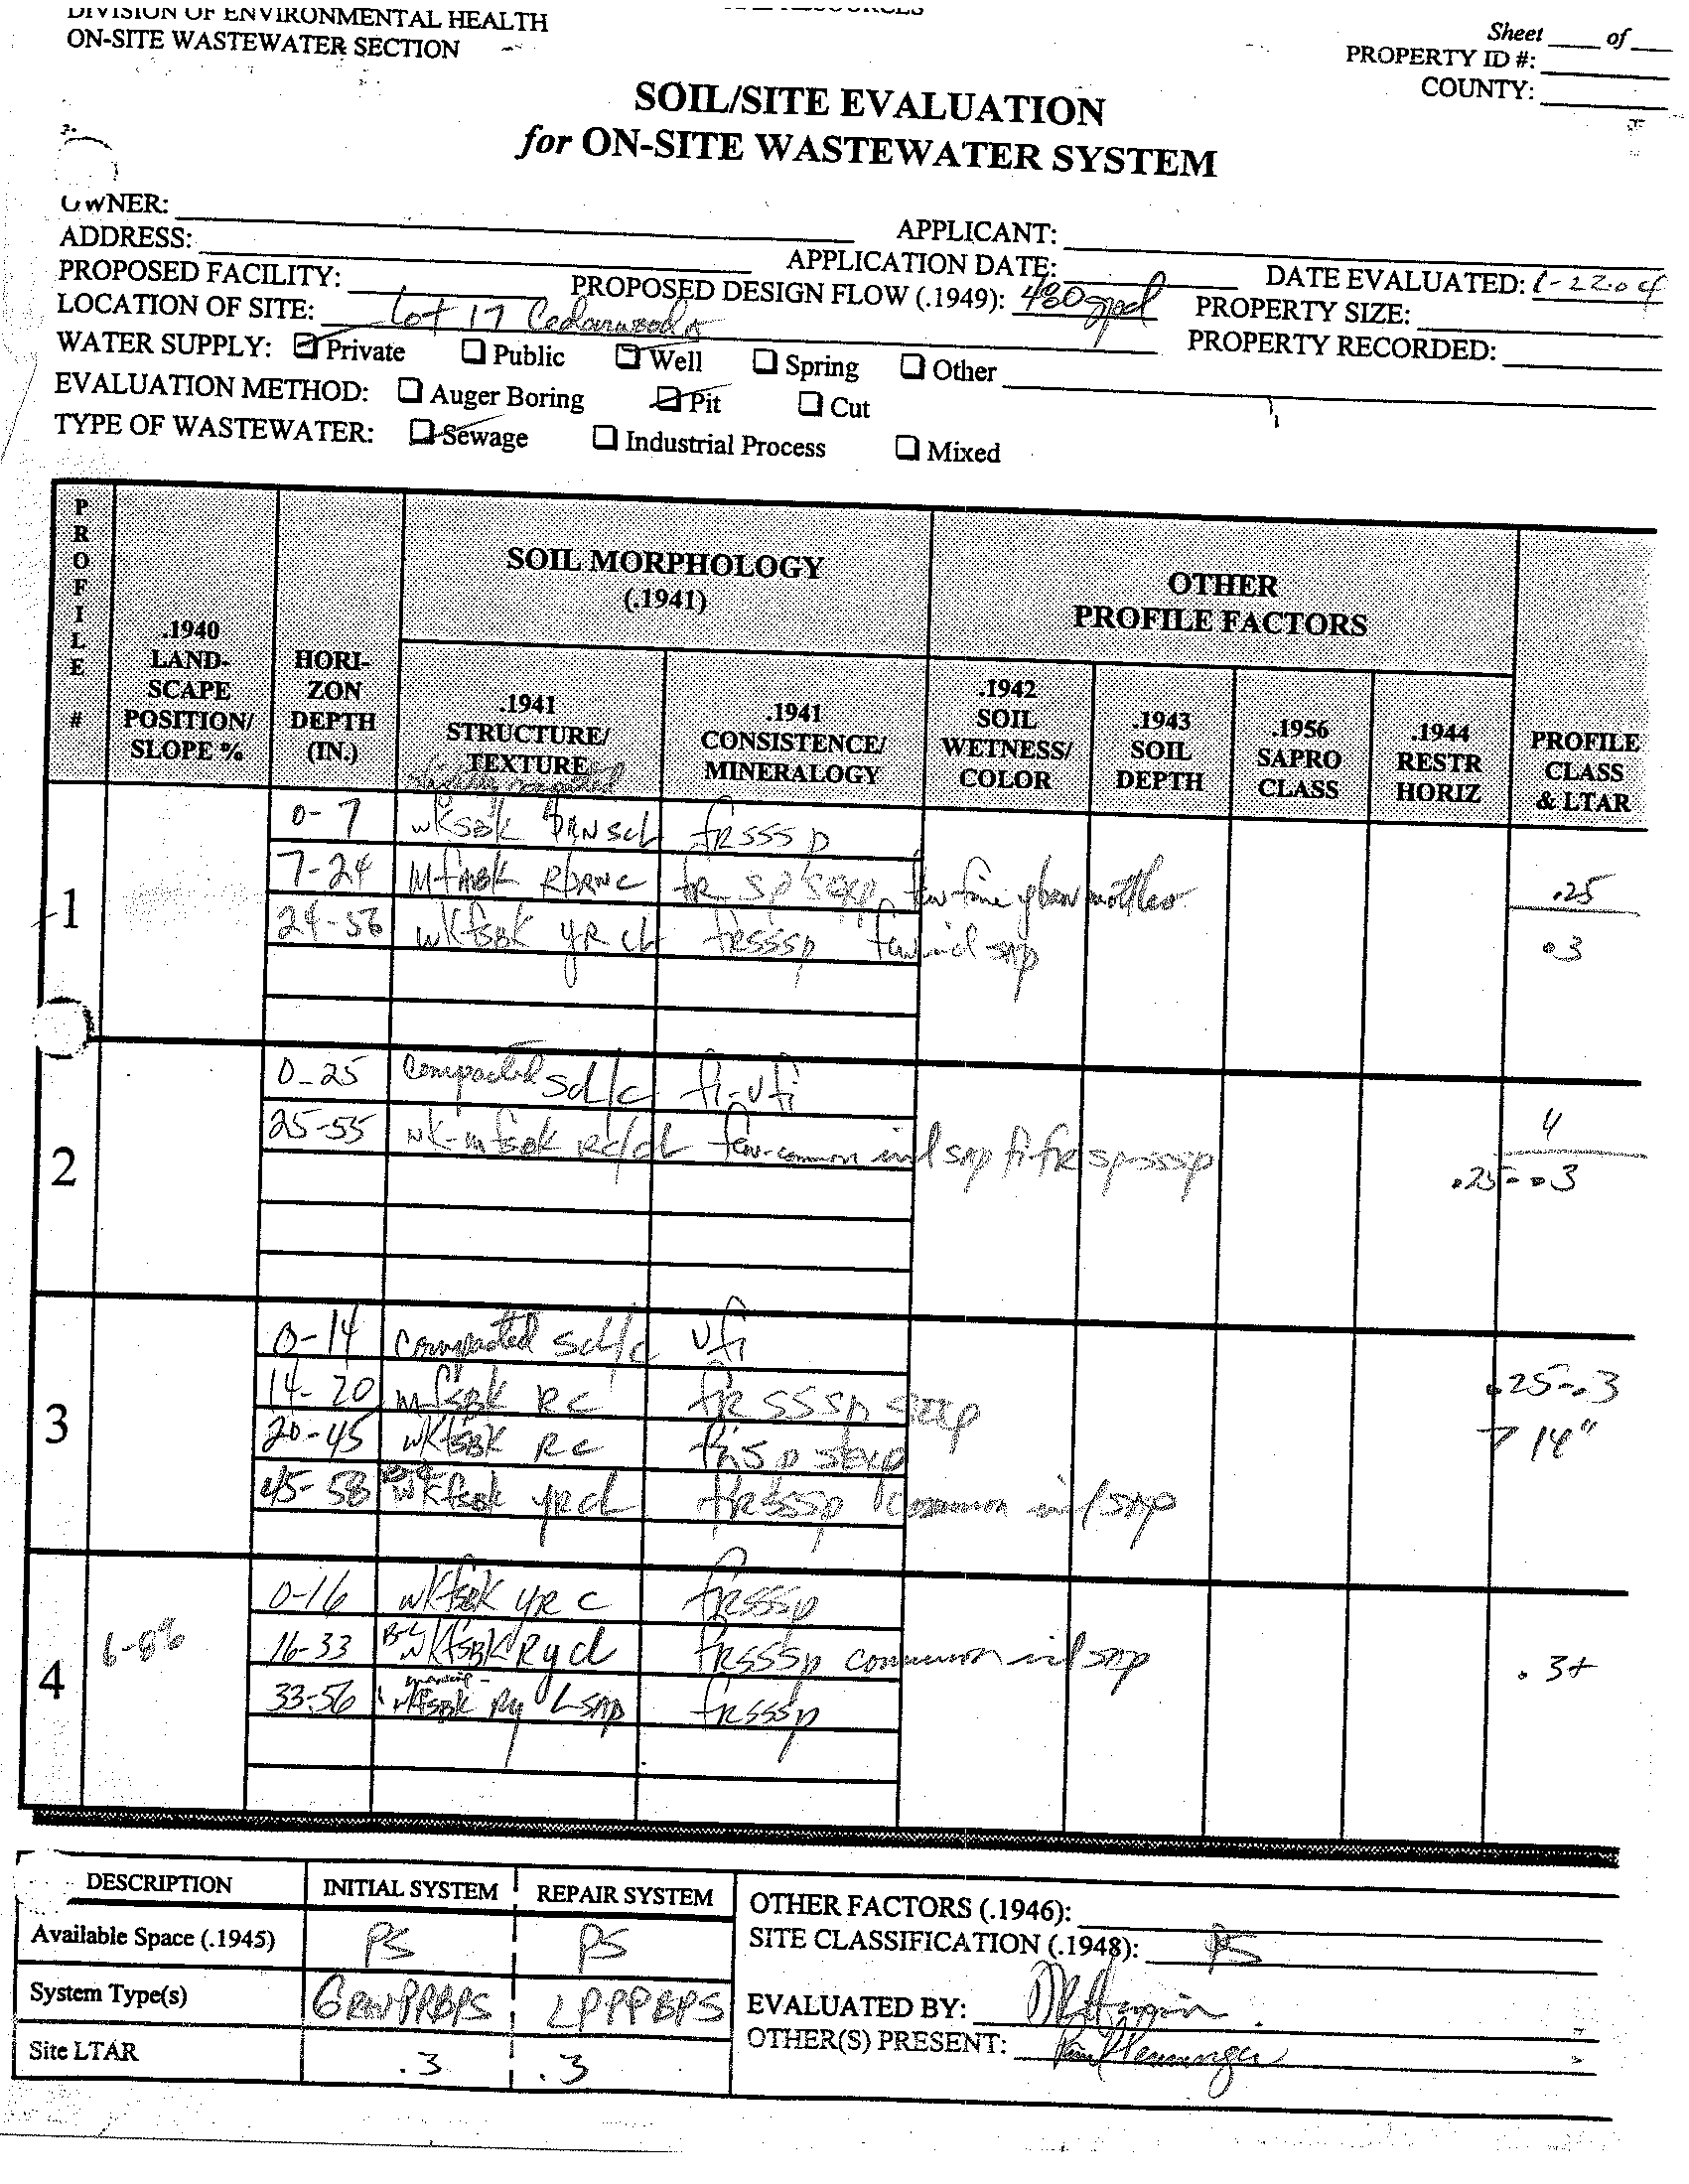 DIVISION OF ENVIRONMENTAL HEALTH
ON-SITE WASTEWATER SECTION
Sheet ____ of ____
PROPERTY ID #:
COUNTY:
SOIL/SITE EVALUATION
for ON-SITE WASTEWATER SYSTEM
OWNER:
APPLICANT:
ADDRESS:
APPLICATION DATE:
DATE EVALUATED: 1-22-04
PROPOSED FACILITY:
PROPOSED DESIGN FLOW (.1949): 480 gpd
PROPERTY SIZE:
LOCATION OF SITE: Lot 17 Cedarwoods
PROPERTY RECORDED:
WATER SUPPLY: Private Public Well Spring Other
EVALUATION METHOD: Auger Boring Pit Cut
TYPE OF WASTEWATER: Sewage Industrial Process Mixed
PROFILE #
.1940 LAND-SCAPE POSITION/ SLOPE %
HORI-ZON DEPTH (IN.)
SOIL MORPHOLOGY
(.1941)
.1941 STRUCTURE/ TEXTURE
.1941 CONSISTENCE/ MINERALOGY
OTHER
PROFILE FACTORS
.1942 SOIL WETNESS/ COLOR
.1943 SOIL DEPTH
.1956 SAPRO CLASS
.1944 RESTR HORIZ
PROFILE CLASS & LTAR
1
0-7 wksbk BRN scl frsssp
7-24 Mfabk RBRNC fr sp sexp few fine ybrn mottles .25
24-56 wkfsbk YR cl frsssp few incl sap .3
2
0-25 compacted scl/c fi-vfi
25-55 wk-mfsbk Rc/cl few-common incl sap fi-fr sp-sssp 4
.25-.3
3
0-14 compacted scl/c vfi
14-20 mfsbk RC fr sssp sexp .25-.3
20-45 wkfsbk RC fi sp sexp > 14"
45-58 wkfsbk YR cl frsssp common incl sap
4
6-8%
0-16 wkfsbk YR C frsssp
16-33 B-C wkfsbk RY cl frsssp common incl sap .3+
33-56 wkfsbk RY L sap frsssp
DESCRIPTION INITIAL SYSTEM REPAIR SYSTEM
Available Space (.1945) PS PS
System Type(s) LPPPBPS
Site LTAR .3 .3
OTHER FACTORS (.1946):
SITE CLASSIFICATION (.1948): PS
EVALUATED BY:
OTHER(S) PRESENT: